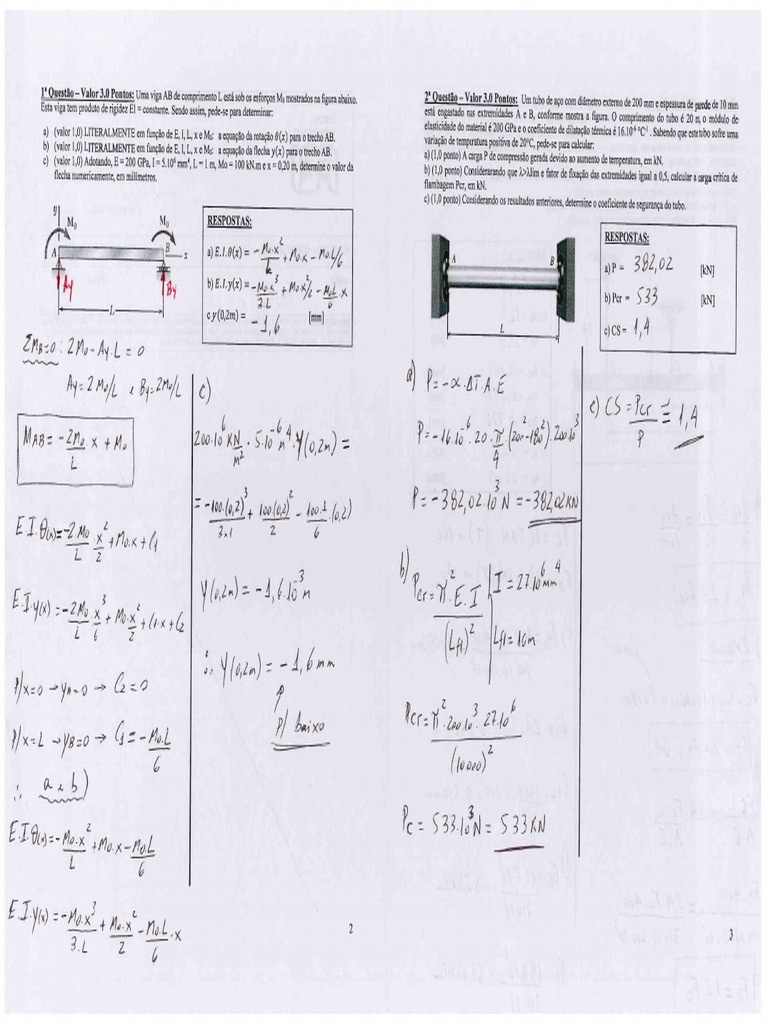 1ª Questão – Valor 3.0 Pontos: Uma viga AB de comprimento L está sob os esforços M₀ mostrados na figura abaixo.
Esta viga tem produto de rigidez EI = constante. Sendo assim, pede-se para determinar:
a) (valor 1,0) LITERALMENTE em função de E, I, L, x e M₀ a equação da rotação θ(x) para o trecho AB.
b) (valor 1,0) LITERALMENTE em função de E, I, L, x e M₀ a equação da flecha y(x) para o trecho AB.
c) (valor 1,0) Adotando, E = 200 GPa, I = 5.10⁶ mm⁴, L = 1 m, Mo = 100 kN.m e x = 0,20 m, determine o valor da
flecha numericamente, em milímetros.
y
M₀
M₀
A
B
x
Ay
By
L
RESPOSTAS:
a) E.I.θ(x) = -M₀.x²/L + M₀x - M₀.L/6
b) E.I.y(x) = -M₀.x³/3.L + M₀.x²/2 - M₀.L/6 . x
c y(0,2m) = -1,6 [mm]
ΣMB=0: 2M₀ - Ay.L = 0
Ay = 2M₀/L e By = 2M₀/L
MAB = -2M₀/L x + M₀
E.I.θ(x) = -2M₀/L . x²/2 + M₀.x + C1
E.I.y(x) = -2M₀/L . x³/6 + M₀.x²/2 + C1.x + C2
P/x=0 → yA=0 → C2=0
P/x=L → yB=0 → C1 = -M₀.L/6
∴ a e b)
E.I.θ(x) = -M₀.x²/L + M₀x - M₀.L/6
E.I.y(x) = -M₀.x³/3.L + M₀.x²/2 - M₀.L/6 . x
c)
200.10⁶ KN/m² . 5.10⁻⁶ m⁴ . Y(0,2m) =
= -100.(0,2)³/3x1 + 100(0,2)²/2 - 100.1/6 . (0,2)
Y(0,2m) = -1,6.10⁻³ m
∴ Y(0,2m) = -1,6 mm
P/ baixo
2
2ª Questão – Valor 3.0 Pontos: Um tubo de aço com diâmetro externo de 200 mm e espessura de parede de 10 mm
está engastado nas extremidades A e B, conforme mostra a figura. O comprimento do tubo é 20 m, o módulo de
elasticidade do material é 200 GPa e o coeficiente de dilatação térmica é 16.10⁻⁶ °C⁻¹ . Sabendo que este tubo sofre uma
variação de temperatura positiva de 20°C, pede-se para calcular:
a) (1,0 ponto) A carga P de compressão gerada devido ao aumento de temperatura, em kN.
b) (1,0 ponto) Considerando que λ>λlim e fator de fixação das extremidades igual a 0,5, calcular a carga crítica de
flambagem Pcr, em kN.
c) (1,0 ponto) Considerando os resultados anteriores, determine o coeficiente de segurança do tubo.
A
B
L
RESPOSTAS:
a) P = 382,02 [kN]
b) Pcr = 533 [kN]
c) CS = 1,4
a) P = -α.ΔT.A.E
P = -16.10⁻⁶.20.π/4.(200²-180²).200.10³
P = -382,02.10³ N = -382,02 KN
b) Pcr = π².E.I/(Lfl)²
I = 27.10⁶ mm⁴
Lfl = 10m
Pcr = π².200.10³.27.10⁶/(10000)²
Pc = 533.10³ N = 533 KN
c) CS = Pcr/P = 1,4
3